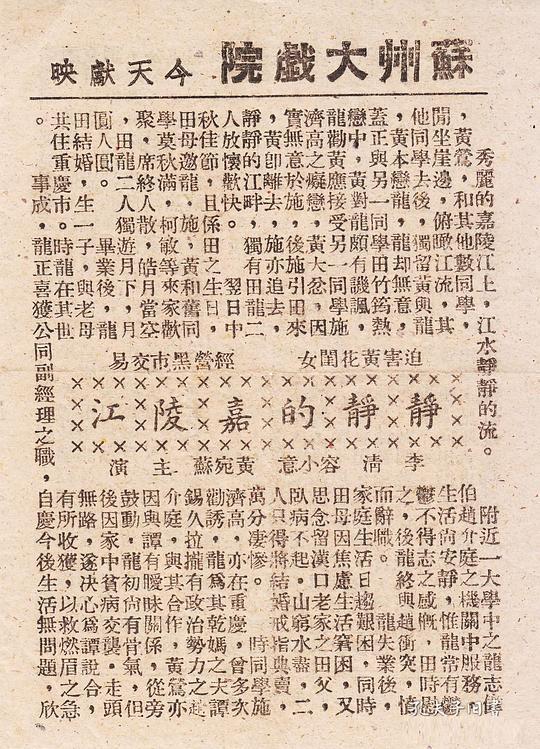 蘇州大戲院 今天獻映
秀麗的嘉陵江上，江水靜靜的流。
附近一大學中之龍志偉
，黃鶯，和其他數同學，
閒坐崖邊，俯瞰江流，其
他同學去後，獨留黃與龍
，黃本戀龍，龍却無意，
蓋正與另一同學田竹筠熱
戀中，黃對龍頗有譏諷，
龍勸黃應接受另一同學施
濟高之癡戀，黃大忿，因
實無意於施，後施引田來
，黃卽離去，施亦追去，
靜靜的江畔，獨有田龍二
人放懷歡快。 翌日中
秋佳節，且係田之生日，
田母邀龍，施，黃和舊同
學莫秋滿，柯敏等來家歡
聚，席終人散，皓月當空
，田龍二人獨遊月下，月
圓人圓。 畢業後，龍
田結婚，生一子，與老母
共住重慶市。時龍在其世
迫害黃花閨女 經營黑市交易
靜靜的嘉陵江
李清 容小意 黃宛蘇 主演
伯趙介庭之機關中服務，
生活尚安靜，惟龍常有鬱
鬱不得志之感慨，田時慰
之，後龍終與趙衝突，憤
而辭職。 龍失業後，
家庭生活日趨艱困，同時
田母因焦慮生活窘困，又
思念留漢口老家之田父，
臥病不起，山窮水盡，二
人只得將結婚戒指典賣，
萬分淒慘。 時同學施
濟高，亦在重慶，曾多次
勸誘，龍為其乾媽之夫譚
錫久拉攏有政治勢力之趙
介庭，與其合作，黃鶯亦
因與譚有曖昧關係，從旁
鼓動，龍初尚有骨氣，但
後因家中貧病交襲，走頭
無路，遂決心為譚說合，
有所收獲，以救燃眉之急
。 事成，龍正喜獲公司副經理之職，
自慶今後生活無問題，欣